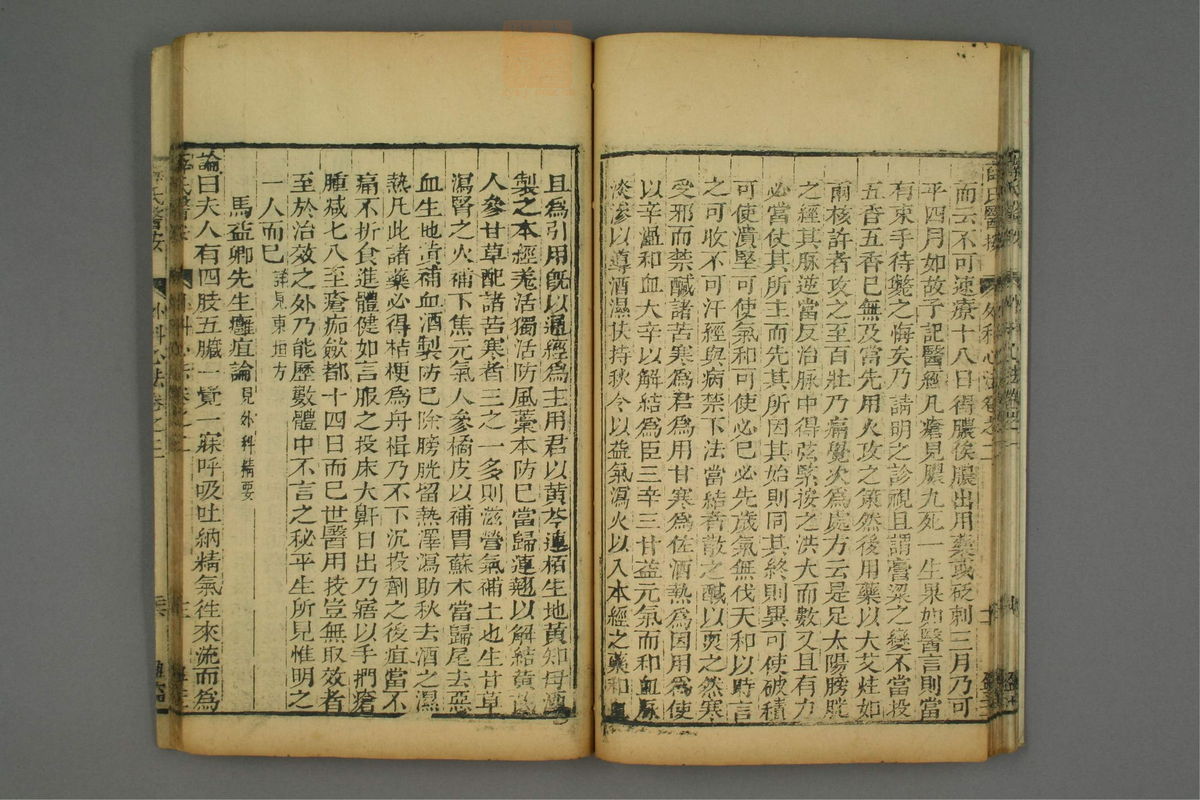 而云不可速療十八日得膿俟膿出用藥或砭刺三月乃可
平四月如故子記醫經凡瘡見膿九死一生果如醫言則當
有束手待斃之悔矣乃請明之診視且謂膏粱之變不當投
五香五香已無及當先用火攻之策然後用藥以大艾炷如
兩核許者攻之至百壯乃痛覺次為處方云是足太陽膀胱
之經其脉逆當反治脉中得弦緊按之洪大而數又且有力
必當伏其所主而先其所因其始則同其終則異可使破積
可使潰堅可使氣和可使必已必先歲氣無伐天和以時言
之可收不可汗經與病禁下法當結者散之鹹以耎之然寒
受邪而禁鹹諸苦寒為君為用甘寒為佐酒熱為因用為使
以辛溫和血大辛以解結為臣三辛三甘益元氣而和血脉
淡滲以導酒濕扶持秋令以益氣瀉火以入本經之藥和血
且為引用既以通經為主用君以黃芩連栢生地黃知母酒
製之本經羗活獨活防風藁本防巳當歸連翹以解結黃芪
人參甘草配諸苦寒者三之一多則滋營氣補土也生甘草
瀉腎之火補下焦元氣人參橘皮以補胃蘇木當歸尾去惡
血生地黃補血酒製防巳除膀胱留熱澤瀉助秋去酒之濕
熱凡此諸藥必得桔梗為舟楫乃不下沉投劑之後疽當不
痛不折食進體健如言服之投床大鼾日出乃寤以手捫瘡
腫減七八至瘡痂斂都十四日而巳世醫用技豈無取效者
至於治效之外乃能歷數體中不言之秘平生所見惟明之
一人而巳 詳見東垣方
馬益卿先生癰疽論 見外科精要
論曰夫人有四肢五臟一覺一寐呼吸吐納精氣徃來流而為